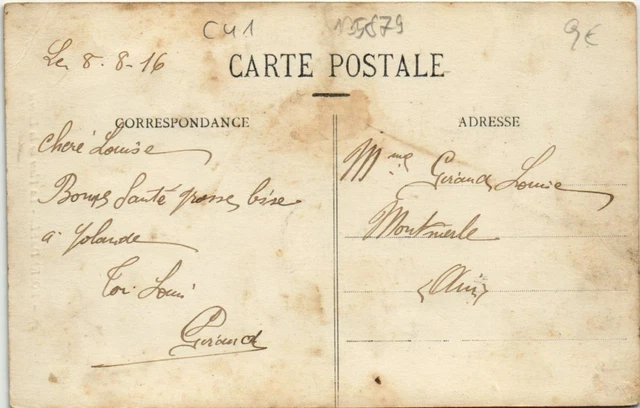 C41
9€
Le 8-8-16
CARTE POSTALE
CORRESPONDANCE
ADRESSE
cheré Louise
Bonne Santé grosse bise
a yolande
Toi Louis
Giraud
Mme Giraud Louise
Montmerle
(Ain)